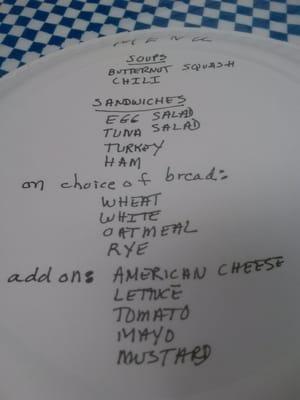 MENU
SOUPS
BUTTERNUT SQUASH
CHILI
SANDWICHES
EGG SALAD
TUNA SALAD
TURKEY
HAM
on choice of bread:
WHEAT
WHITE
OATMEAL
RYE
add on: AMERICAN CHEESE
LETTUCE
TOMATO
MAYO
MUSTARD